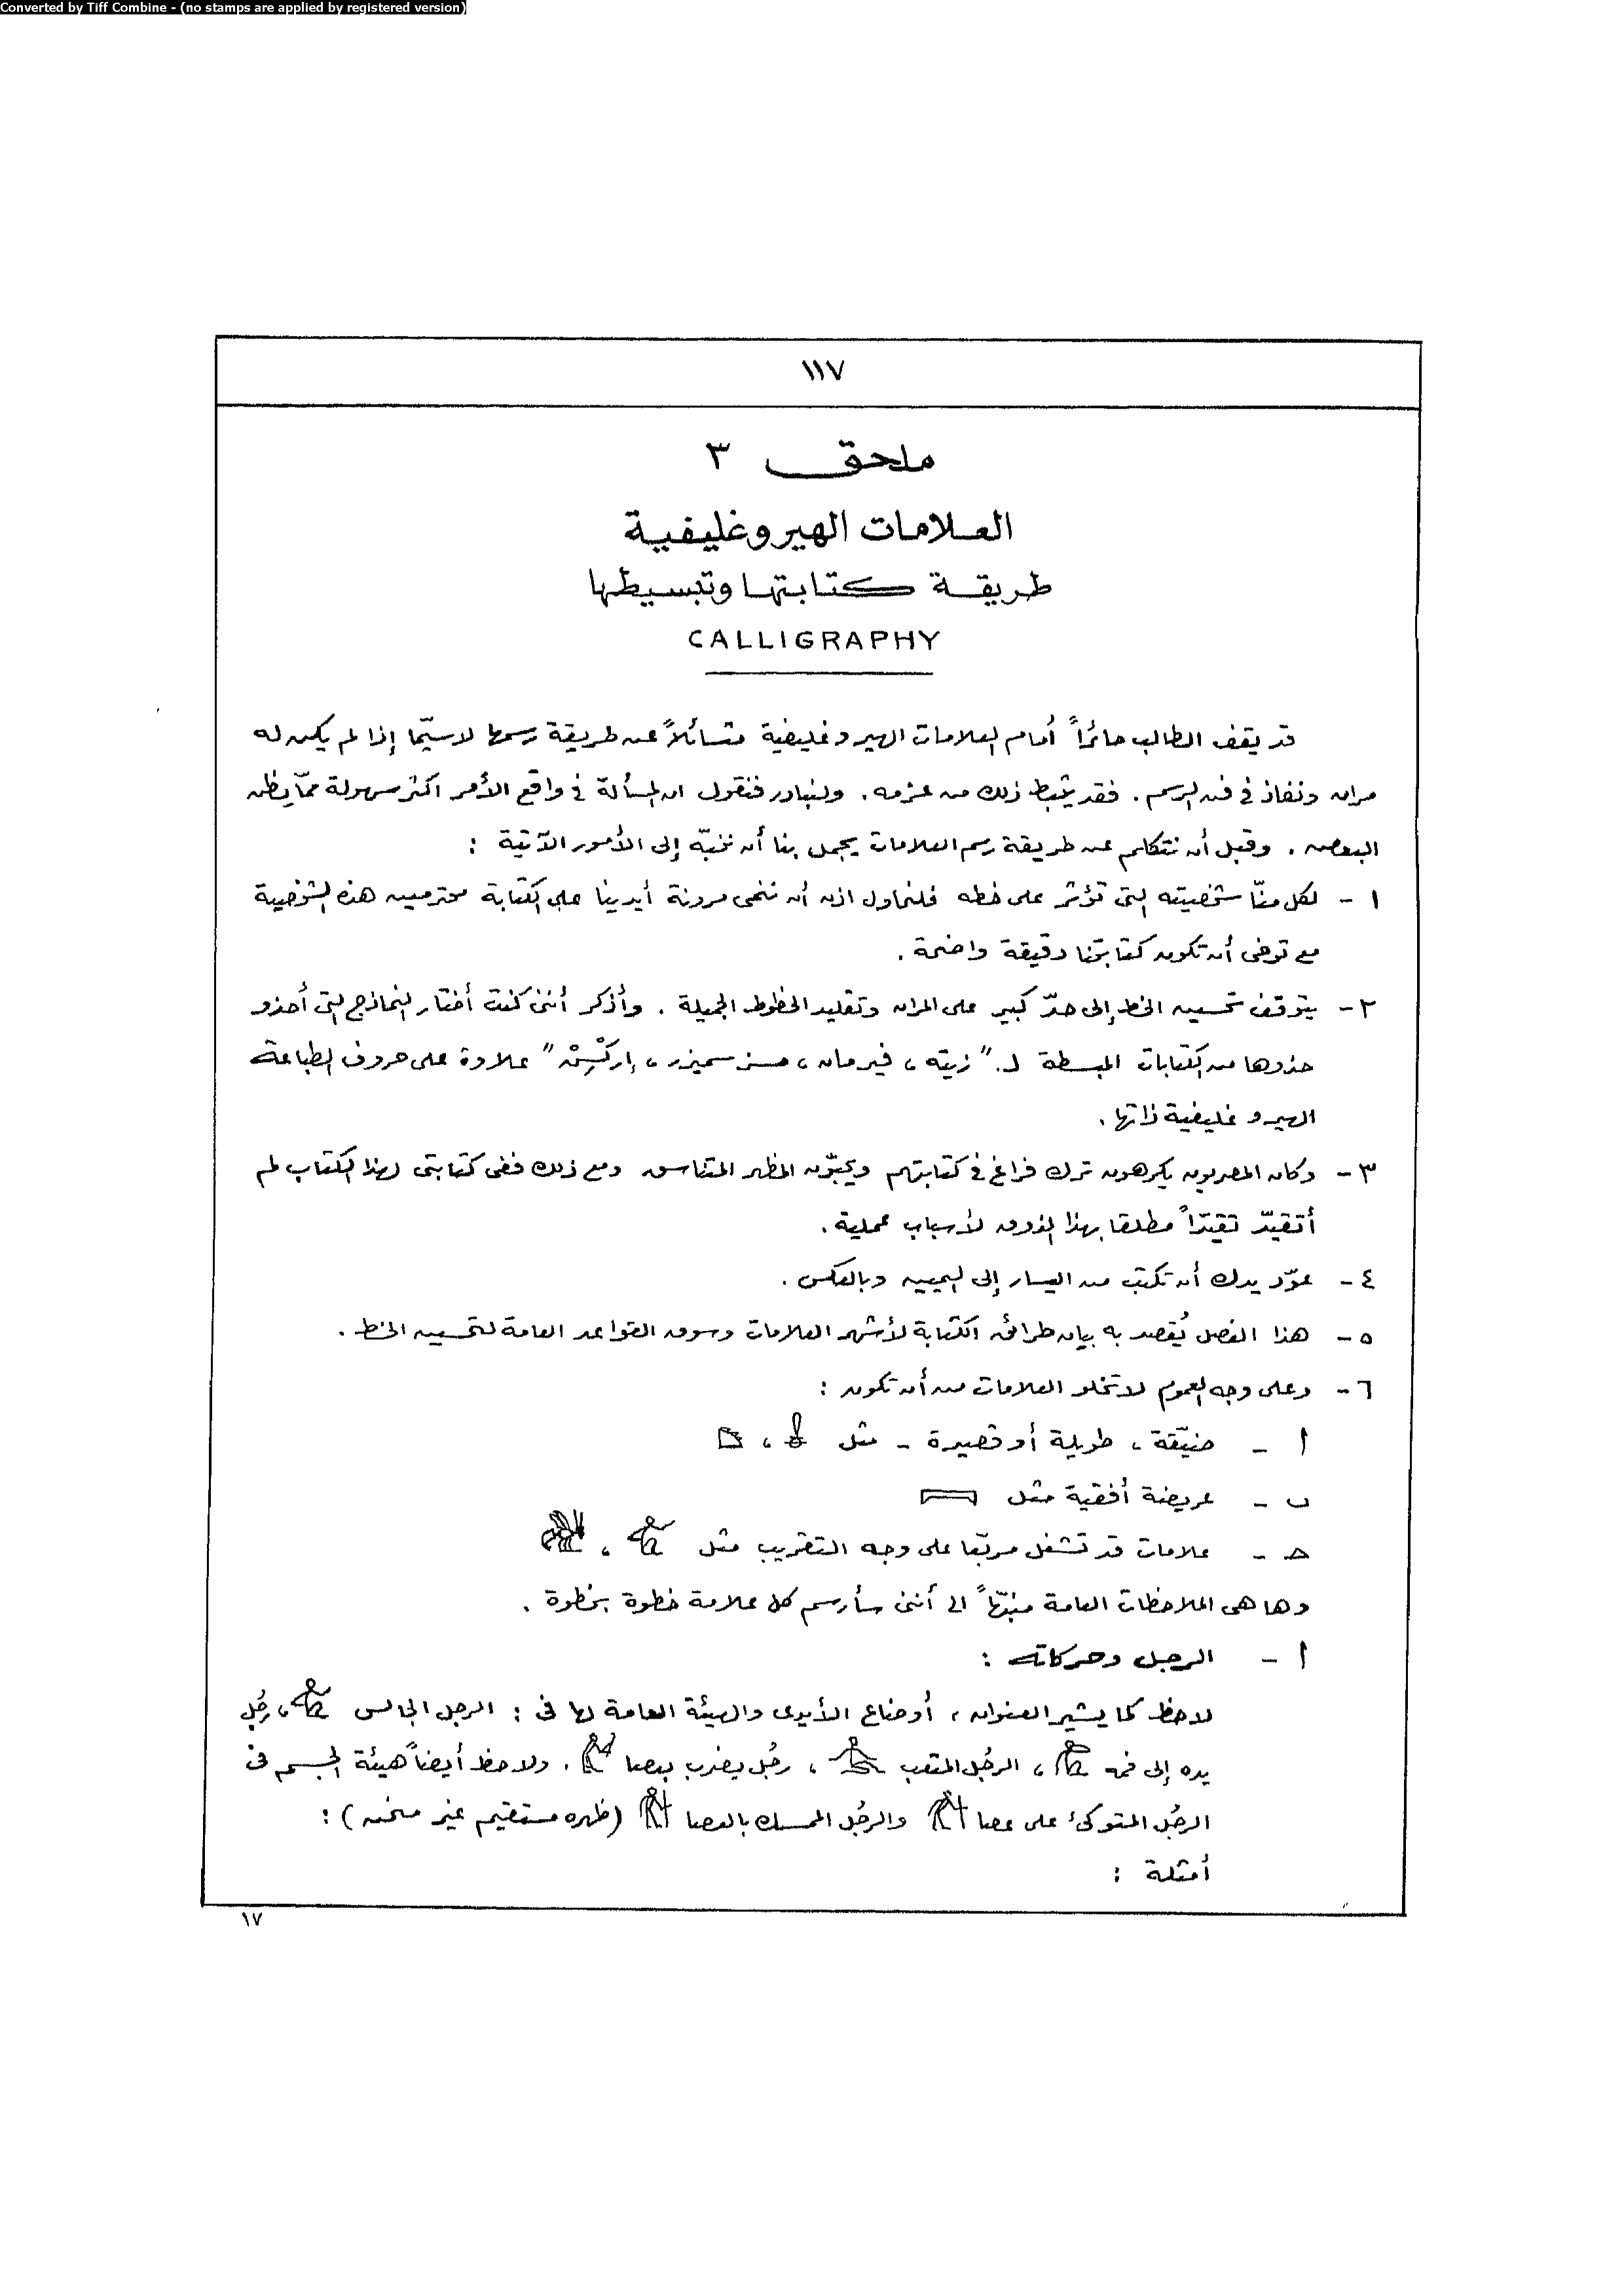 Converted by Tiff Combine - (no stamps are applied by registered version)
١١٧
ملحق ٣
العلامات الهيروغليفية
طريقة كتابتها وتبسيطها
CALLIGRAPHY
قد يقف الطالب حائراً أمام العلامات الهيروغليفية متسائلاً عن طريقة رسمها لاسيّما إذا لم يكن له
مران ونفاذ في فن الرسم . فقد يثبط ذلك من عزمه . ولنبادر فنقول ان المسألة في واقع الأمر اكثر سهولة ممّا يظن
البعض . وقبل أن نتكلم عن طريقة رسم العلامات يجمل بنا أن ننبّه إلى الأمور الآتية :
١ - لكل منّا شخصيته التى تؤثر على خطه فلنحاول اذن أن ننمى مرونة أيدينا على الكتابة محترمين هذه الشخصية
مع توخى أن تكون كتابتنا دقيقة واضحة .
٢ - يتوقف تحسين الخط إلى حدّ كبير على المران وتقليد الخطوط الجميلة . وأذكر أننى كنت أختار النماذج التى أحذو
حذوها من الكتابات المبسطة لـ " زيته ، فيرمان ، مسز سميزر ، إركْسِنْ " علاوة على حروف الطباعة
الهيروغليفية ذاتها .
٣ - وكان المصريون يكرهون ترك فراغ في كتابتهم ويحبّون المظهر المتناسق ومع ذلك ففى كتابتى لهذا الكتاب لم
أتقيّد تقيّداً مطلقا بهذا الذوق لأسباب عملية .
٤ - عوّد يدك أن تكتب من اليسار إلى اليمين وبالعكس .
٥ - هذا الفصل يُقصد به بيان طرائق الكتابة لأشهر العلامات وسوق القواعد العامة لتحسين الخط .
٦ - وعلى وجه العموم لا تخلو العلامات من أن تكون :
ا - ضيّقة ، طويلة أو قصيرة - مثل ،
ب - عريضة أفقية مثل
حـ - علامات قد تشغل مربّعا على وجه التقريب مثل ،
وها هى الملاحظات العامة منبّهاً الى أننى سأرسم كل علامة خطوة بخطوة .
ا - الرجل وحركاته :
لاحظ كما يشير العنوان ، أوضاع الأيدى والهيئة العامة لها فى : الرجل الجالس ، رجُل
يده إلى فمه ، الرجُل المتعب ، رجُل يضرب بعصا . ولاحظ أيضاً هيئة الجسم فى
الرجُل المتوكئ على عصا والرجُل الممسك بالعصا ( ظهره مستقيم غير منحن ) :
أمثلة :
١٧